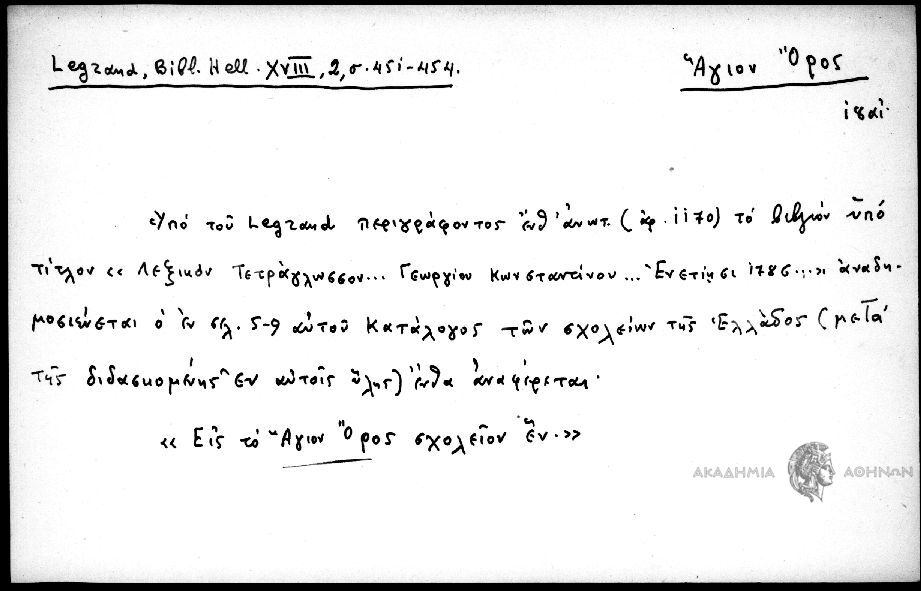 Legrand, Bibl. Hell. XVIII, 2, σ. 451-454.
Ἅγιον Ὄρος
Ὑπό τοῦ Legrand περιγράφοντος ἔνθ' ἀνωτ. (ἀρ. 1170) τό βιβλίον ὑπό
τίτλον «Λεξικόν Τετράγλωσσον... Γεωργίου Κωνσταντίνου... Ἐνετίῃσι 1786...» ἀναδη-
μοσιεύεται ὁ ἐν σελ. 5-9 αὐτοῦ Κατάλογος τῶν σχολείων τῆς Ἑλλάδος (μετά
τῆς διδασκομένης ἐν αὐτοῖς ὕλης) ἔνθα ἀναφέρεται·
«Εἰς τό Ἅγιον Ὄρος σχολεῖον ἕν.»
ΑΚΑΔΗΜΙΑ ΑΘΗΝΩΝ